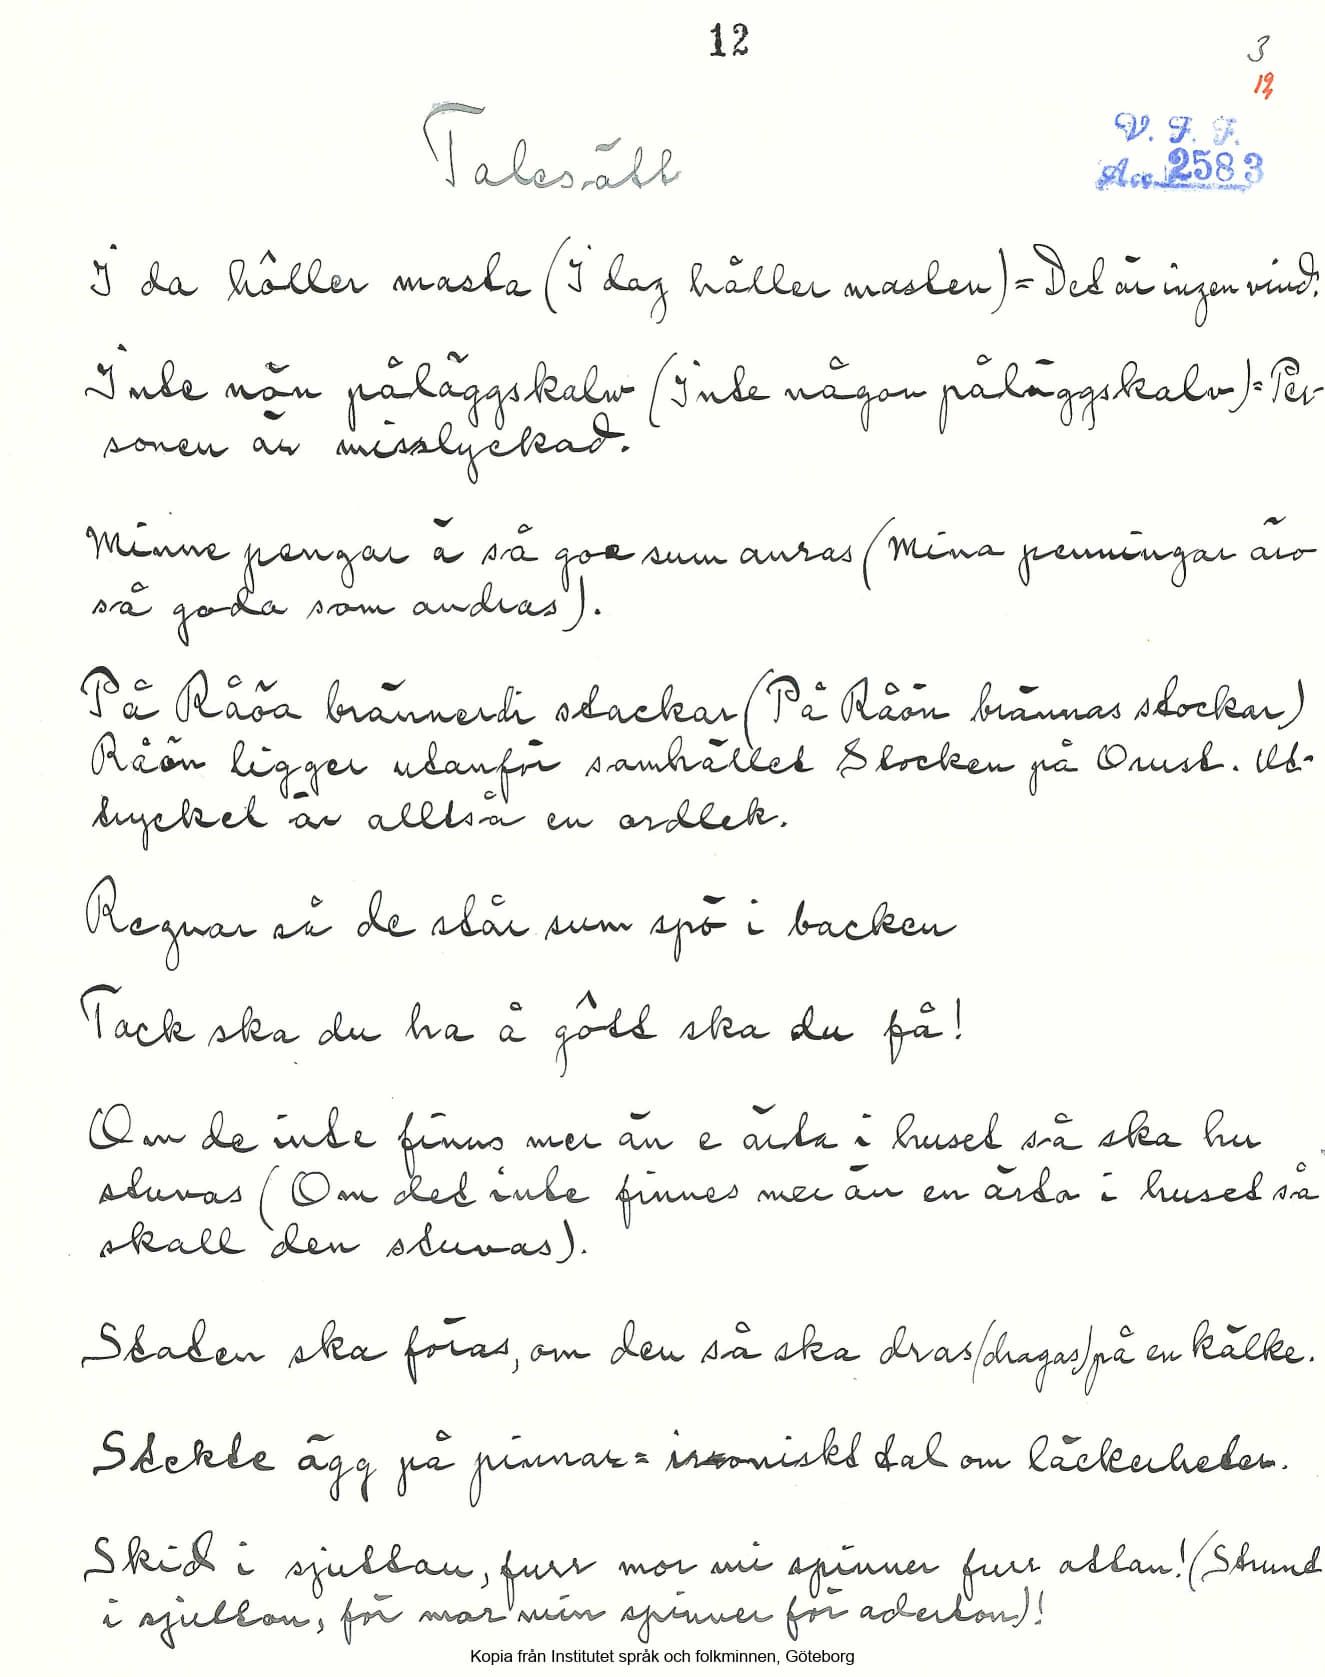 12
3
V. F. F.
Acc. 2583
Talesätt
I da hôller masta (I dag håller masten) = Det är ingen vind.
Inte nön påläggskalw (Inte någon påläggskalv) = Per-
sonen är misslyckad.
Minne pengar ä så goe sum anras (Mina penningar äro
så goda som andras).
På Råöa brännerdi stackar (På Råön brännas stockar)
Råön ligger utanför samhället Stocken på Orust. Ut-
trycket är alltså en ordlek.
Regnar så de står sum spö i backen
Tack ska du ha å gôtt ska du få!
Om de inte finns mer än e ärta i huset så ska hu
stuvas (Om det inte finnes mer än en ärta i huset så
skall den stuvas).
Staten ska föras, om den så ska dras (dragas) på en kälke.
Stekte ägg på pinnar = ironiskt tal om läckerheter.
Skid i sjuttan, furr mor mi spinner furr attan! (Strunt
i sjutton, för mor min spinner för aderton)!
Kopia från Institutet språk och folkminnen, Göteborg